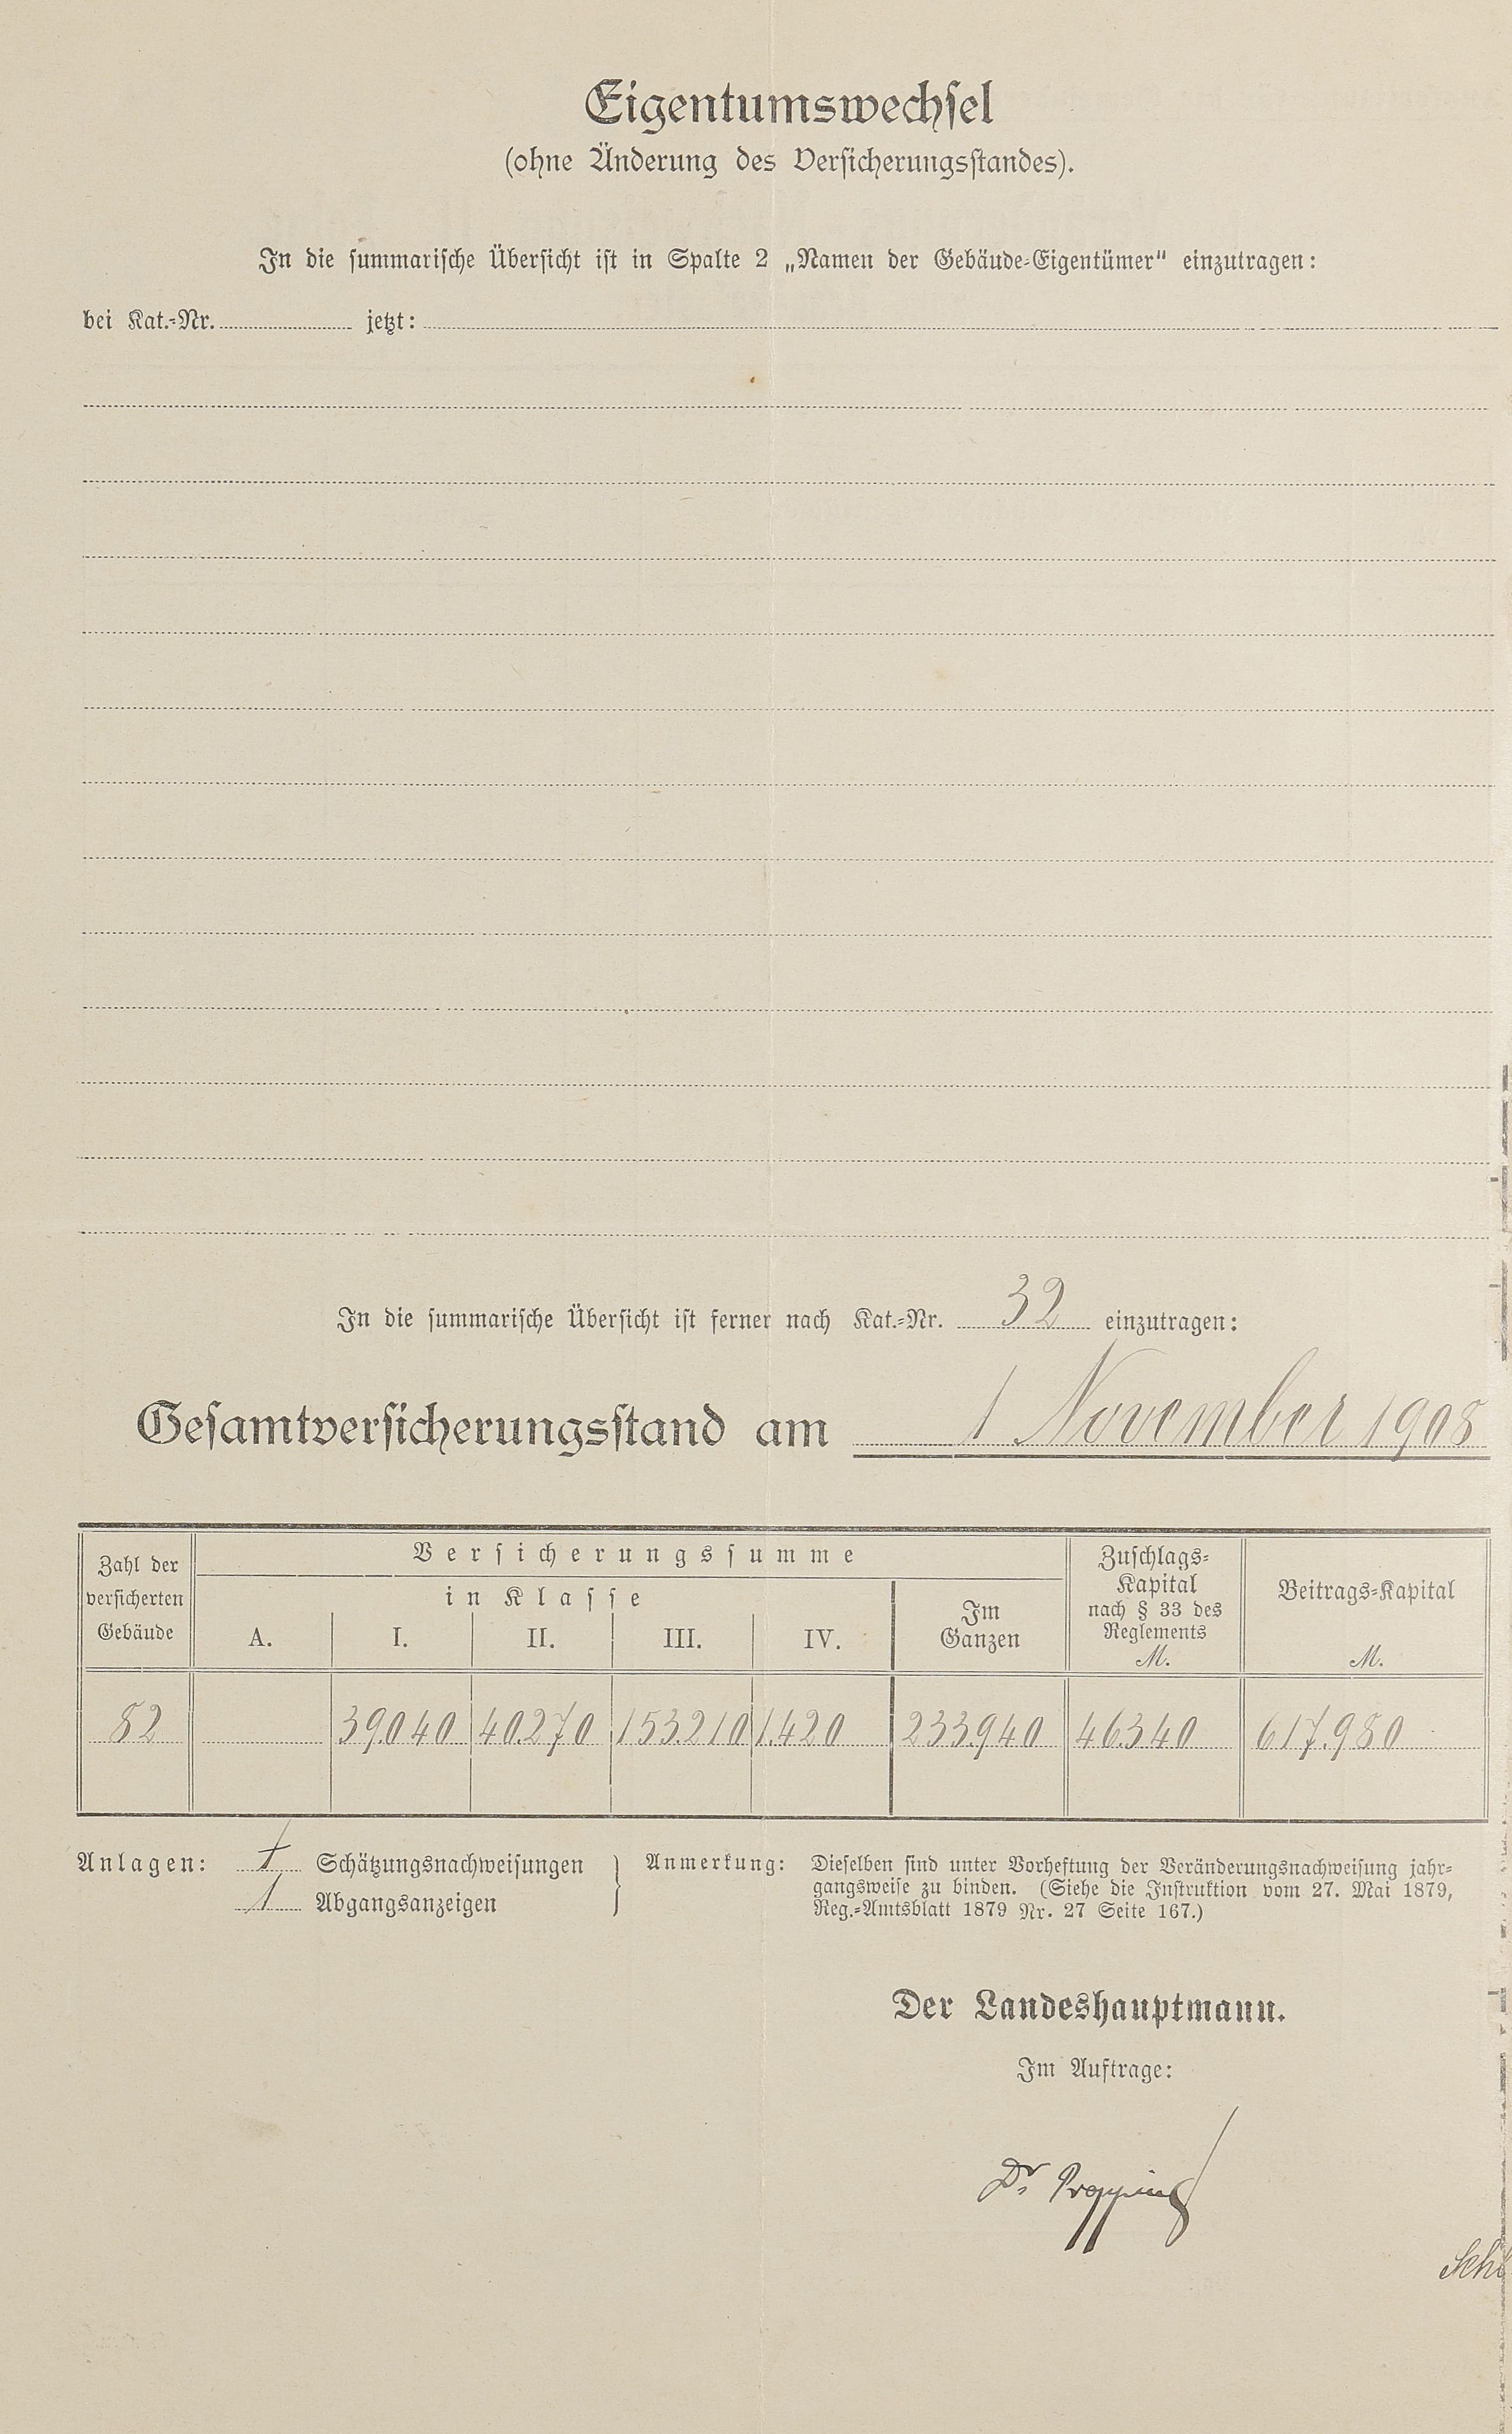 Eigentumswechsel
(ohne Änderung des Versicherungsstandes).
In die summarische Übersicht ist in Spalte 2 „Namen der Gebäude-Eigentümer" einzutragen:
bei Kat.-Nr. jetzt:
In die summarische Übersicht ist ferner nach Kat.-Nr. 32 einzutragen:
Gesamtversicherungsstand am 1 November 1908
Zahl der versicherten Gebäude
Versicherungssumme
in Klasse
A. I. II. III. IV.
Im Ganzen
Zuschlags-Kapital nach § 33 des Reglements M.
Beitrags-Kapital M.
82 39040 40.270 153.210 1.420 233.940 46.340 617.980
Anlagen: 1 Schätzungsnachweisungen
1 Abgangsanzeigen
Anmerkung: Dieselben sind unter Vorheftung der Veränderungsnachweisung jahr-
gangsweise zu binden. (Siehe die Instruktion vom 27. Mai 1879,
Reg.-Amtsblatt 1879 Nr. 27 Seite 167.)
Der Landeshauptmann.
Im Auftrage:
Dr Propping
Sch